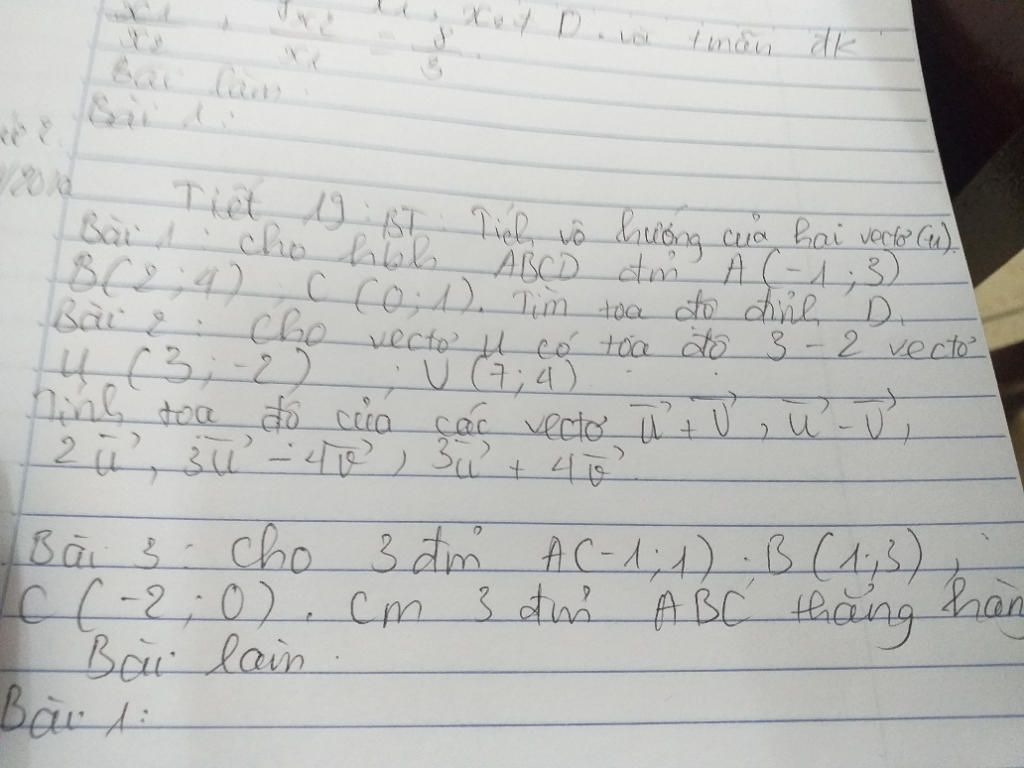 x₂ x₁ = 8/3
và tmãn đk
Bài làm.
Bài 1:
Tiết 19: BT: Tích vô hướng của hai vectơ (u).
Bài 1: cho hbh ABCD đm̉ A(-1;3)
B(2;4), C(0;1). Tìm tọa độ đỉnh D.
Bài 2: Cho vectơ u có tọa độ 3-2 vectơ
u (3;-2) ; V(7;4)
Tính tọa độ của các vectơ u⃗ + V⃗, u⃗ - V⃗,
2u⃗, 3u⃗ - 4v⃗, 3u⃗ + 4v⃗
Bài 3: Cho 3 đm̉ A(-1;1). B(1;3),
C(-2;0). Cm 3 đm̉ ABC thẳng hàn
Bài làm.
Bài 1: